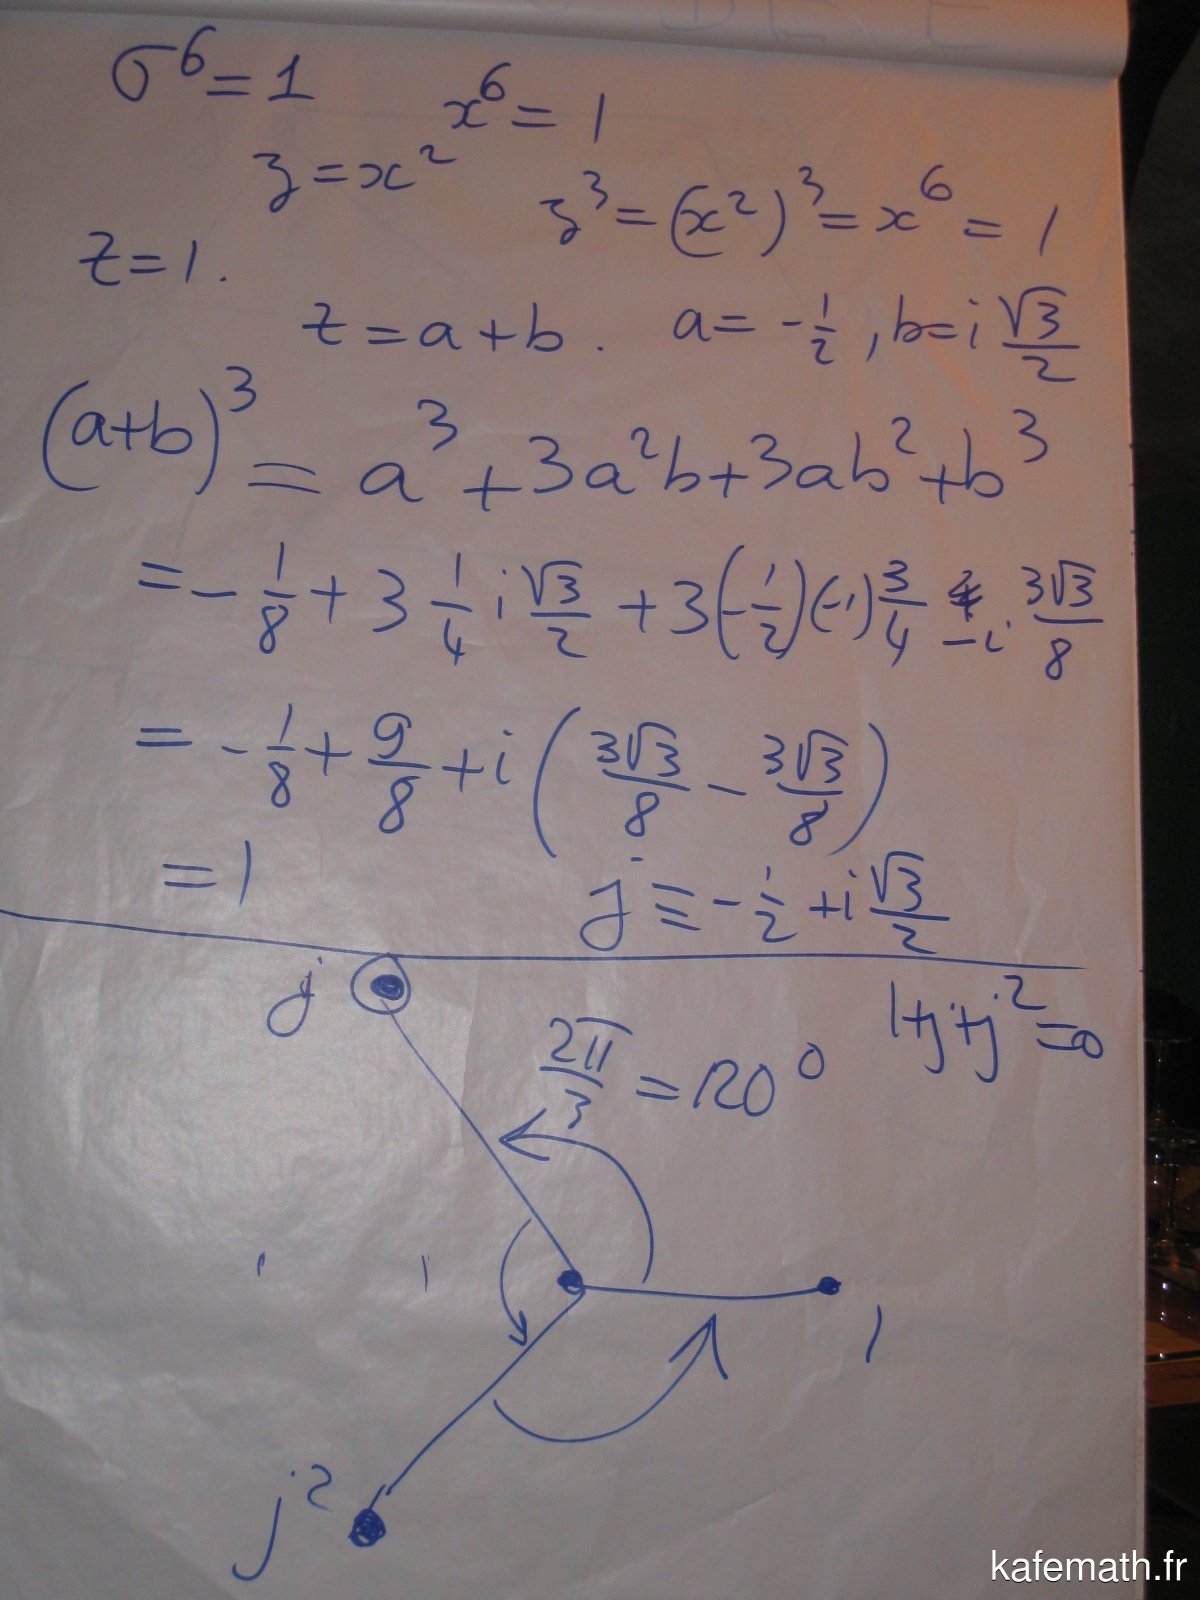 σ⁶ = 1
x⁶ = 1
z = x²
z³ = (x²)³ = x⁶ = 1
z = 1.
z = a + b. a = -1/2, b = i √3/2
(a+b)³ = a³ + 3a²b + 3ab² + b³
= - 1/8 + 3 1/4 i √3/2 + 3(-1/2)(-1) 3/4 - i 3√3/8
= - 1/8 + 9/8 + i (3√3/8 - 3√3/8)
= 1
j ≡ - 1/2 + i √3/2
j
1+j+j² = 0
2π/3 = 120⁰
1
j²
kafemath.fr